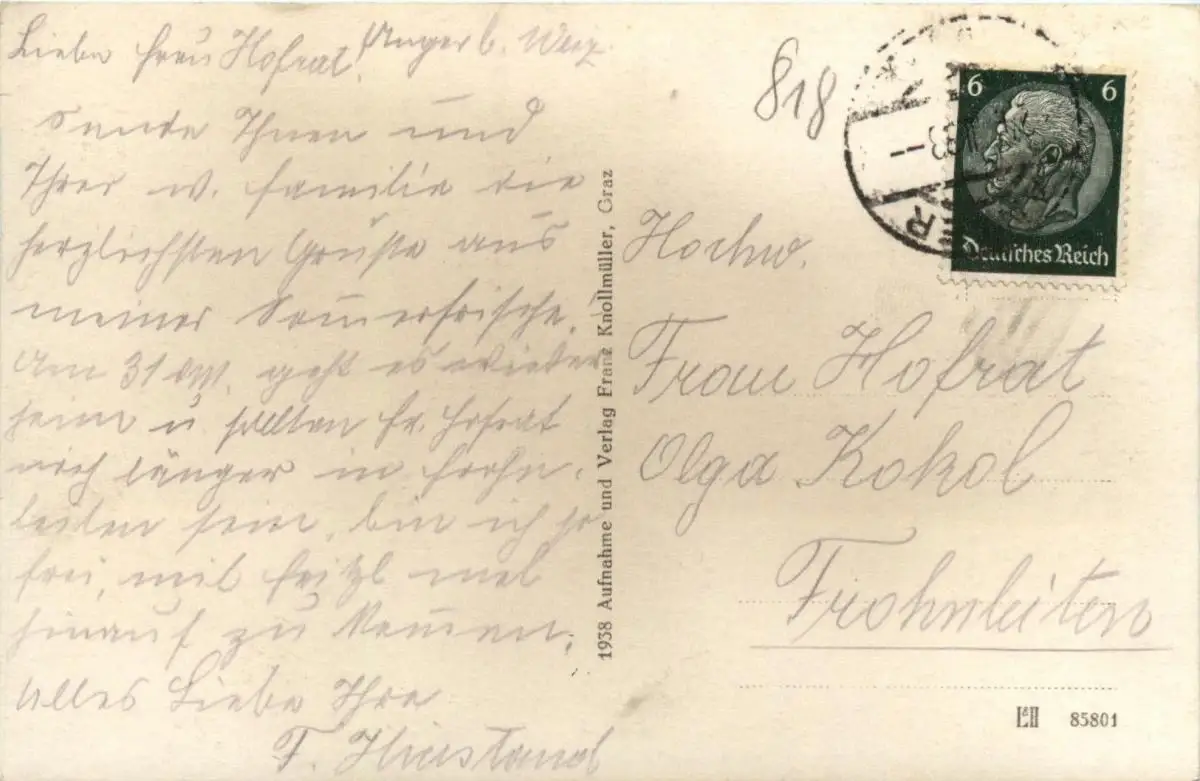 Anger b. Weiz.
Liebe Frau Hofrat!
Sende Ihnen und
Ihrer w. Familie die
herzlichsten Grüße aus
meiner Som̅erfrische.
Am 31 geht es wieder
heim u sollten Fr. Hofrat
noch länger in Frohn-
leiten sein, bin ich so
frei, mit Fritzl mal
hinauf zu kom̅en.
Alles Liebe Ihre
F.
818
6 6
Deutsches Reich
Hochw.
Frau Hofrat
Olga Kokol
Frohnleiten
1938 Aufnahme und Verlag Franz Knollmüller, Graz
85801